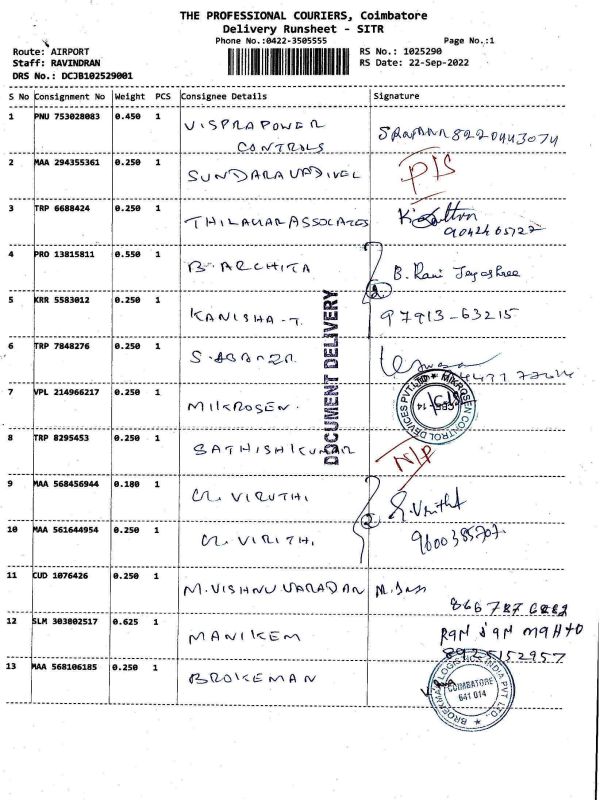 THE PROFESSIONAL COURIERS, Coimbatore
Delivery Runsheet - SITR
Phone No.:0422-3505555 Page No.:1
Route: AIRPORT RS No.: 1025290
Staff: RAVINDRAN RS Date: 22-Sep-2022
DRS No.: DCJB102529001
S No Consignment No Weight PCS Consignee Details Signature
1 PNU 753028083 0.450 1 VISPRA POWER
CONTROLS 8220943074
2 MAA 294355361 0.250 1 SUNDARAVADIVEL P/S
3 TRP 6688424 0.250 1 THILAKAR ASSOCIATES
9042465722
4 PRO 13815811 0.550 1 B. ARCHITA B. Rani Jayashree
2
5 KRR 5583012 0.250 1 KANISHA - T. 97913-63215
DOCUMENT DELIVERY
6 TRP 7848276 0.250 1
7 VPL 214966217 0.250 1 MIKROSEN. MIKROSEN CONTROL DEVICES PVT LTD
8 TRP 8295453 0.250 1 SATHISHKUMAR N/P
9 MAA 568456944 0.180 1 VIRUTHI
2
10 MAA 561644954 0.250 1 9600385707.
11 CUD 1076426 0.250 1 M. VISHNU VARADAN
12 SLM 303802517 0.625 1 MANIKEM
8925152957
13 MAA 568106185 0.250 1 BROKEMAN
COIMBATORE
641 014